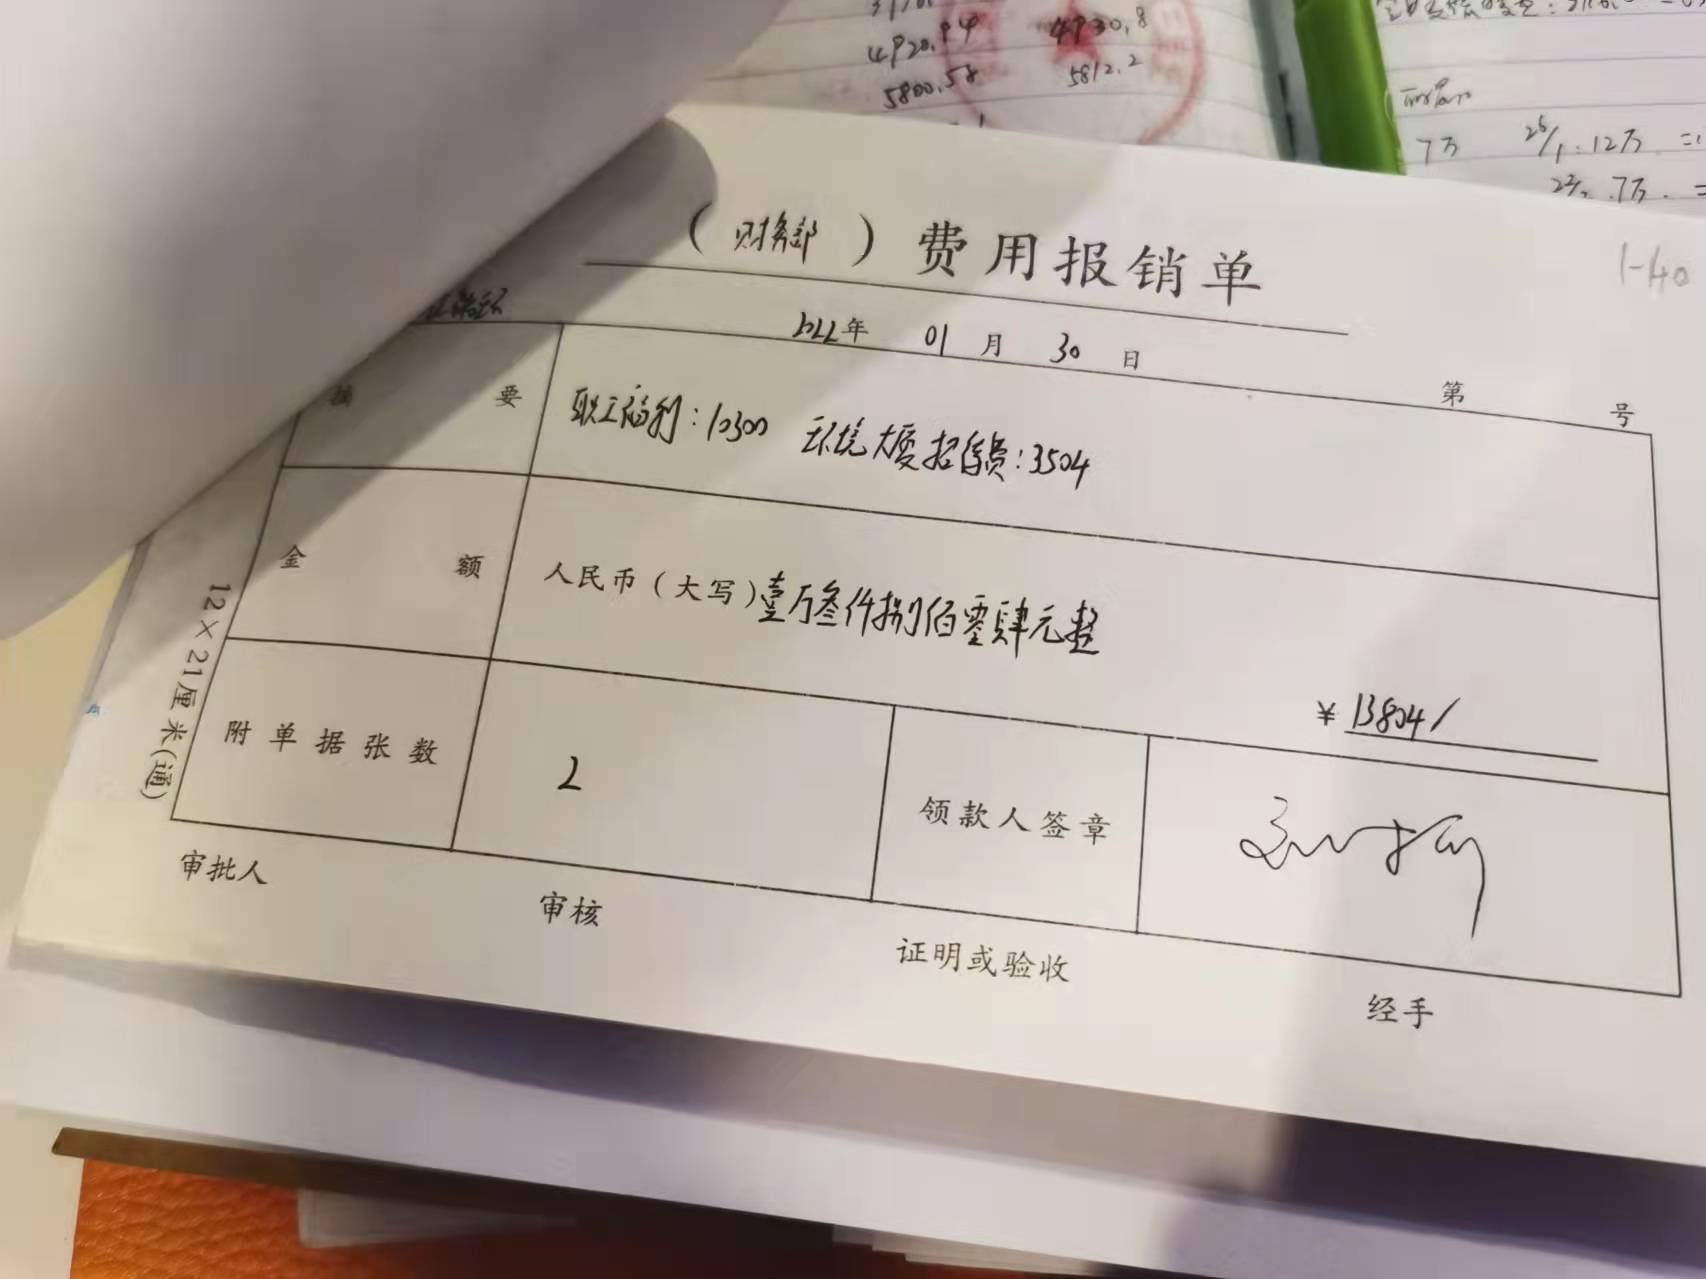 4920.94 4930.8
5800.58 5812.2
7万 25/1:12万
7万
(财务部)费用报销单
1-40
2022年 01月 30日
第 号
摘要 职工福利:10300 环境大厦招待费:3504
金额 人民币(大写)壹万叁仟捌佰零肆元整
¥13804/
附单据张数 2 领款人签章
审批人 审核 证明或验收 经手
12×21厘米(通)